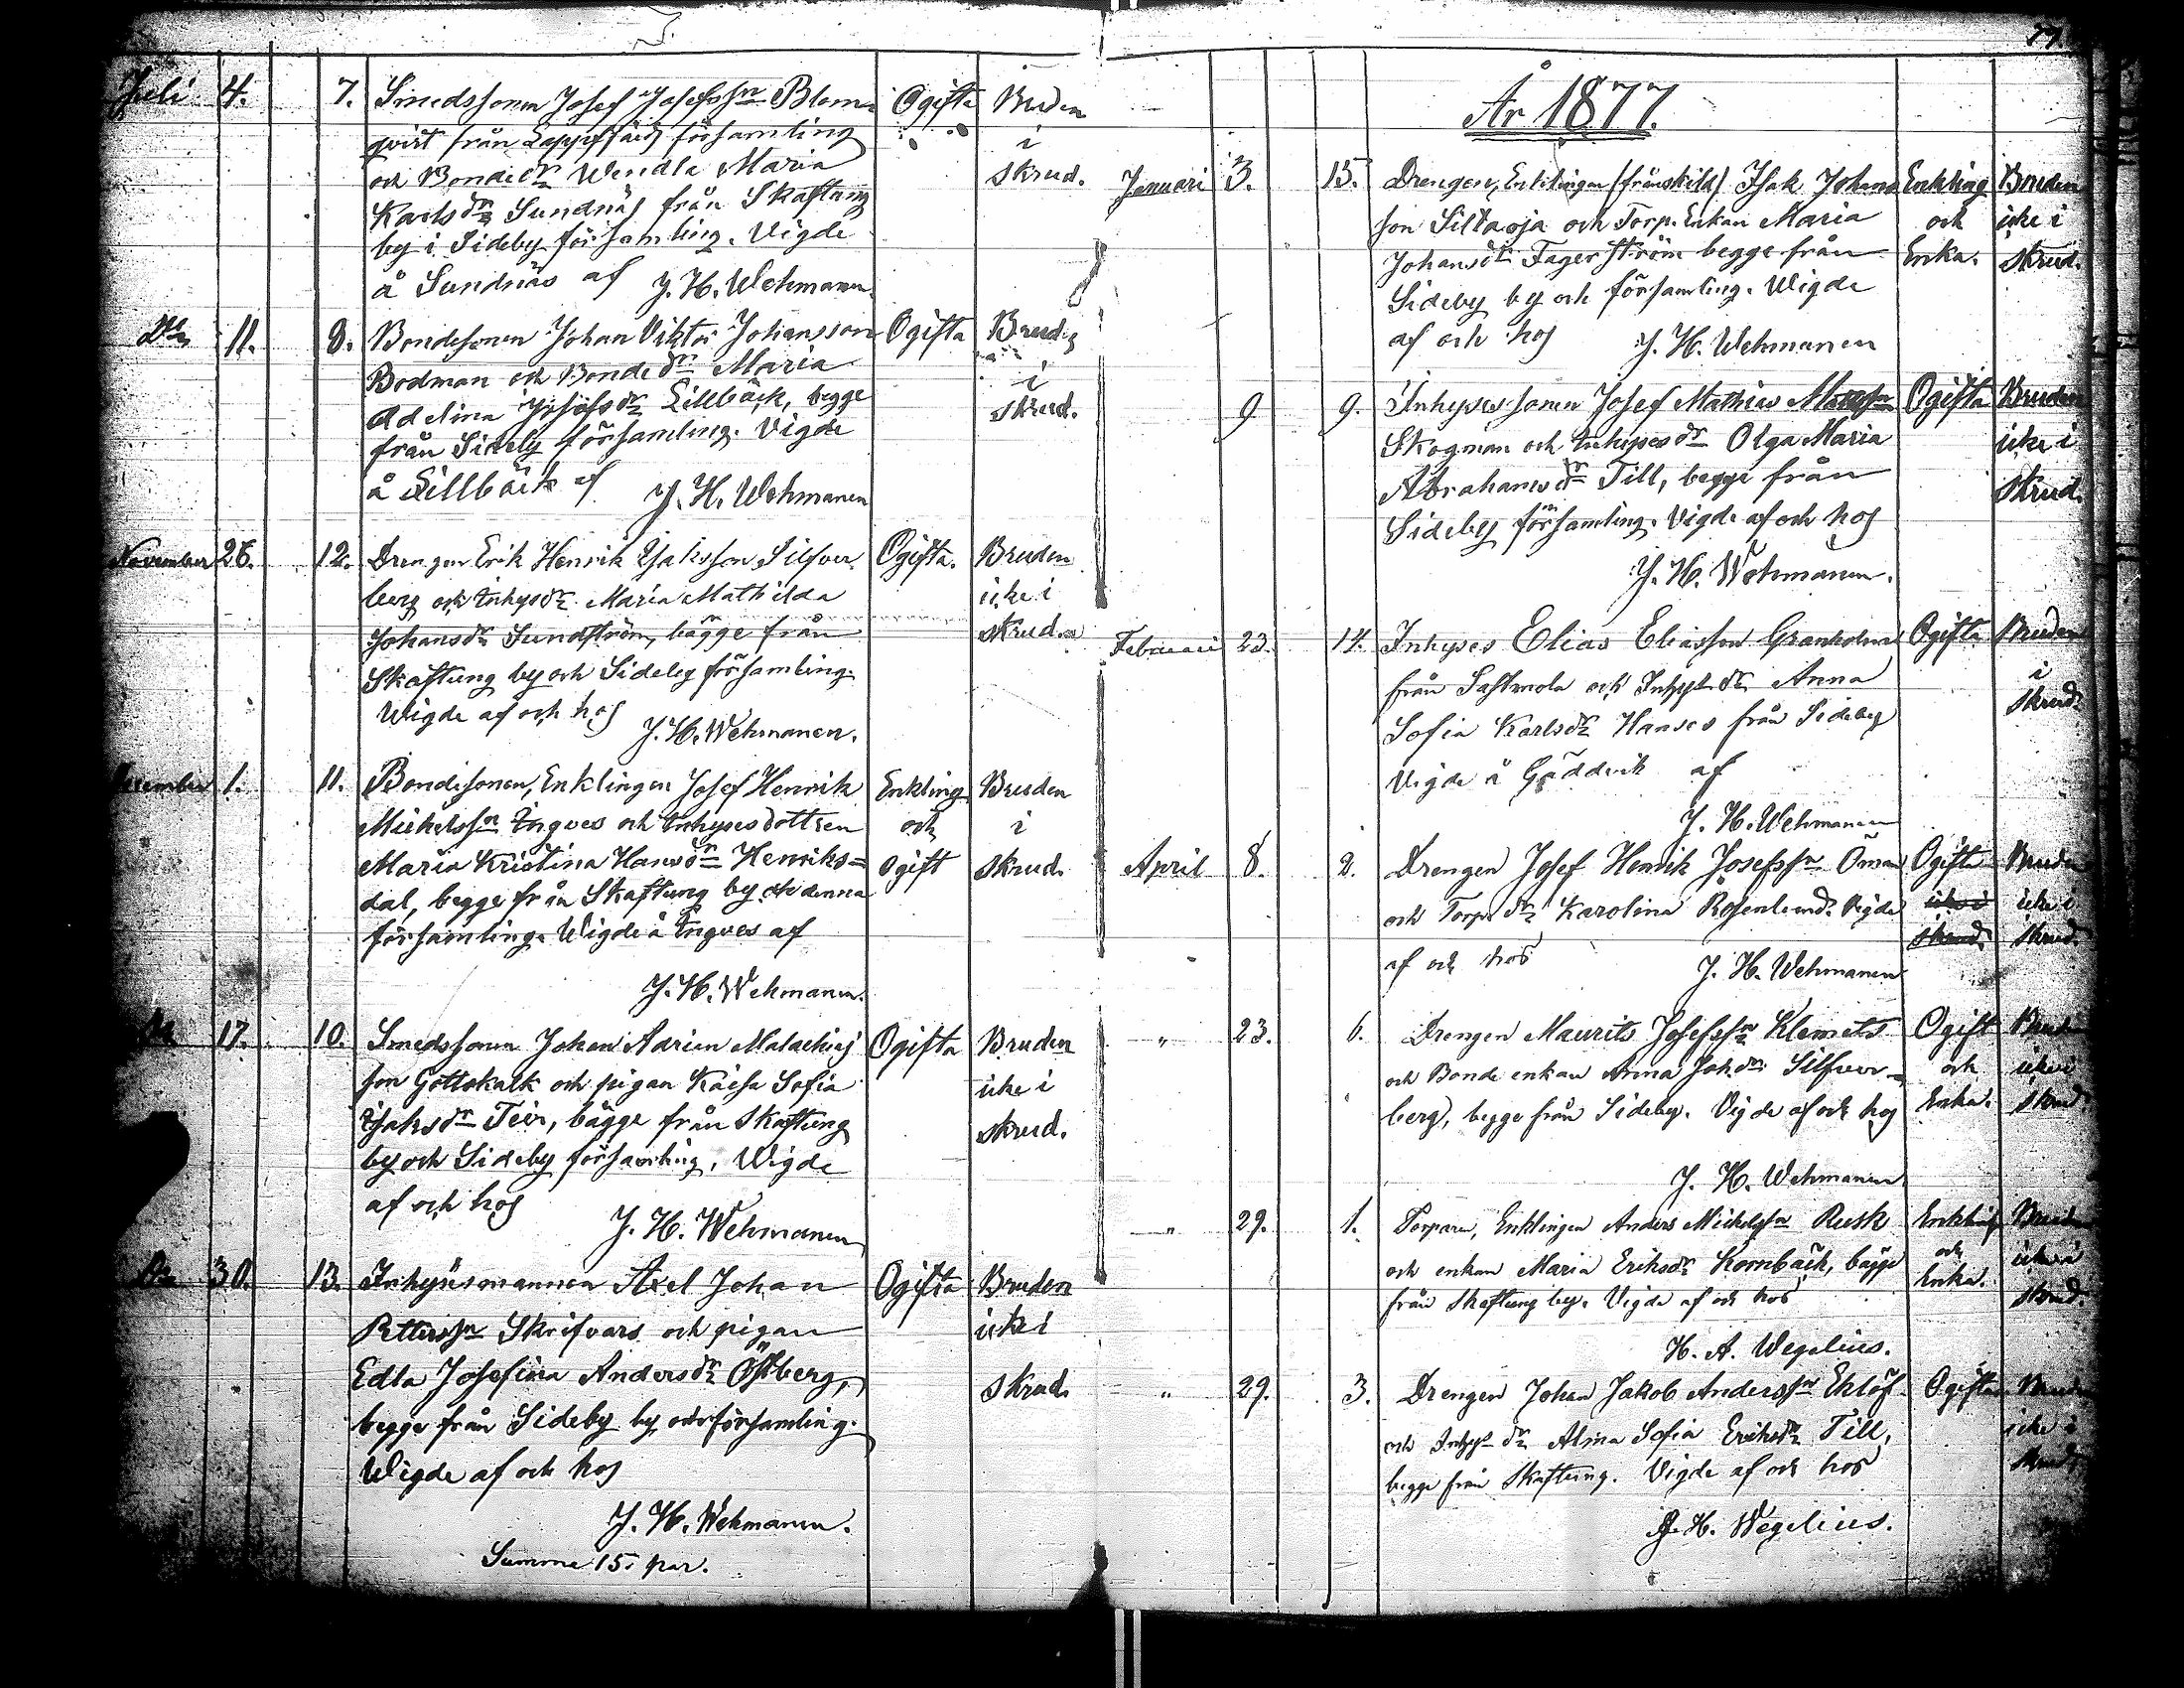 Juli 4. 7. Smedssonen Josef Josefssn Blom- Ogifta Bruden
qvist från Lappfjärd församling i
och Bondedr Wendla Maria skrud.
Karlsdr Sundnäs från Skaftung
by i Sideby församling. Vigde
å Sundnäs af J. H. Wehmanen.
Do 11. 8. Bondesonen Johan Viktor Johansson Ogifta Bruden
Bodman och Bondedr Maria i
Adelina Josefsdr Lillbäck, begge skrud.
från Sideby församling. Vigde
å Lillbäck af J. H. Wehmanen
November 26. 12. Drengen Erik Henrik Isaksson Silfver- Ogifta. Bruden
berg och Inhysdr Maria Mathilda icke i
Johansdr Sundström, bägge från skrud.
Skaftung by och Sideby församling.
Wigde af och hos J. H. Wehmanen.
December 1. 11. Bondesonen, Enklingen Josef Henrik Enkling Bruden
Mickelssn Ingves och Inhysesdottren och i
Maria Kristina Hansdr Henriks= Ogift skrud.
dal, begge från Skaftung by och denna
församling. Wigde å Ingves af
J. H. Wehmanen.
Do 17. 10. Smedssonen Johan Adrian Malachias Ogifta Bruden
son Gottskalk och pigan Kaisa Sofia icke i
Isaksdr Teir, bägge från Skaftung skrud.
by och Sideby församling. Wigde
af och hos J. H. Wehmanen
Do 30. 13. Inhysesmannen Axel Johan Ogifta Bruden
Petterssn Skrifvars och pigan icke i
Edla Josefina Andersdr Östberg, skrud.
begge från Sideby by och församling.
Wigde af och hos
J. H. Wehmanen.
Summa 15. par.
År 1877.
Januari 3. 15. Drengen, Enklingen (frånskild) Isak Johans Enkling Bruden
son Siltaoja och Torp. Enkan Maria och icke i
Johansdr Fagerström begge från Enka. skrud.
Sideby by och församling. Wigde
af och hos J. H. Wehmanen
9 9. Inhyses sonen Josef Mathias Ogifta Bruden
Skogman och Inhysesdr Olga Maria icke i
Abrahamsdr Till, begge från skrud.
Sideby församling. Vigde af och hos
J. H. Wehmanen.
Februari 23. 14. Inhyses Elias Eliasson Granholm Ogifta Bruden
från Sastmola och Inhysdr Anna i
Sofia Karlsdr Hanses från Sideby skrud.
Vigde å Gäddvik af
J. H. Wehmanen
April 8. 2. Drengen Josef Henrik Josefssn Öman Ogifta Bruden
och Torp. dr Karolina Rosenlund. Vigde icke i icke i
af och hos skrud. skrud.
J. H. Wehmanen
" 23. 6. Drengen Maurits Josefssn Klemets Ogift Bruden
och Bonde enkan Anna Joh.dr Silfver= och icke i
berg, begge från Sideby. Vigde af och hos Enka. skrud.
J. H. Wehmanen
" 29. 1. Torparen, Enklingen Anders Mickelssn Rusk Enkling Bruden
och enkan Maria Eriksdr Kornbäck, bägge och icke i
från Skaftung by. Vigde af och hos Enka. skrud.
H. A. Wegelius.
" 29. 3. Drengen Johan Jakob Anderssn Eklöf Ogifta Bruden
och Inhysdr Alina Sofia Eriksdr Till, icke i
begge från Skaftung. Vigde af och hos skrud.
H. Wegelius.